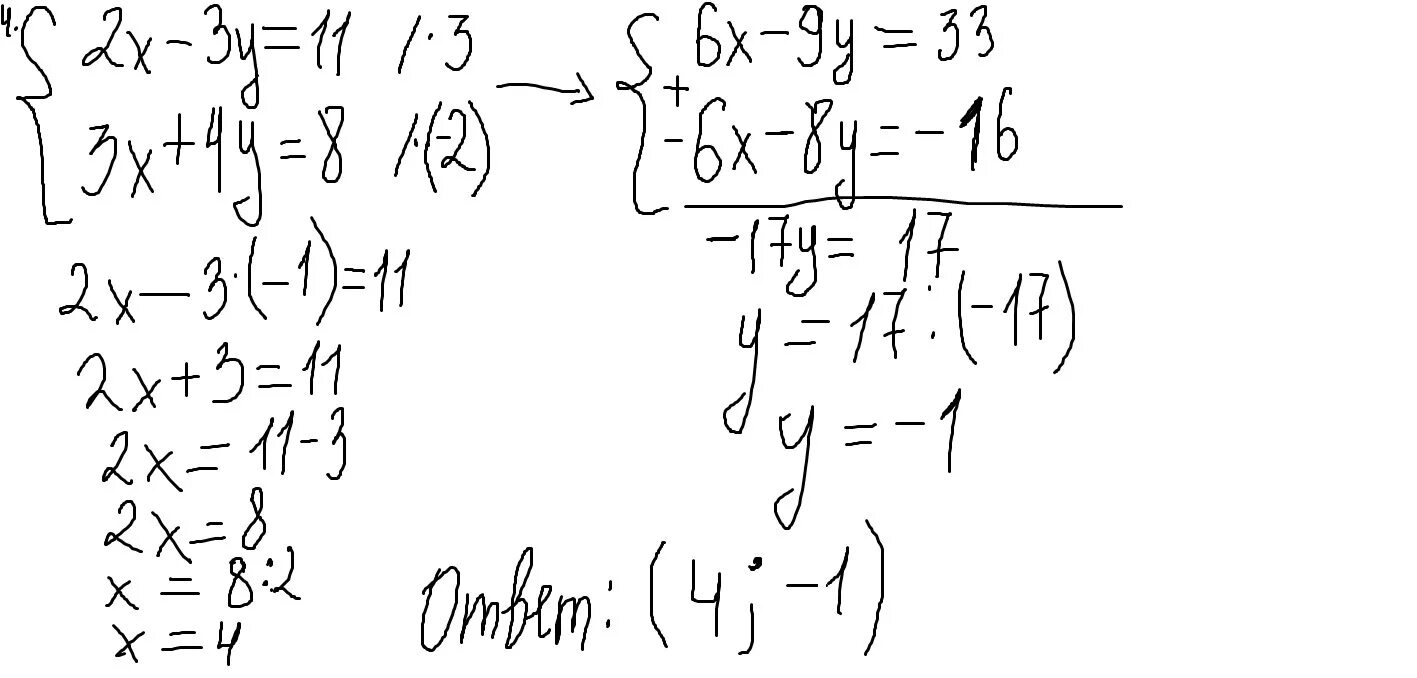 4.
2x - 3y = 11 / · 3
3x + 4y = 8 / · (-2)
6x - 9y = 33
+
- 6x - 8y = - 16
- 17y = 17
y = 17 : (-17)
y = - 1
2x - 3 · (-1) = 11
2x + 3 = 11
2x = 11 - 3
2x = 8
x = 8 : 2
x = 4
Ответ: (4 ; - 1)